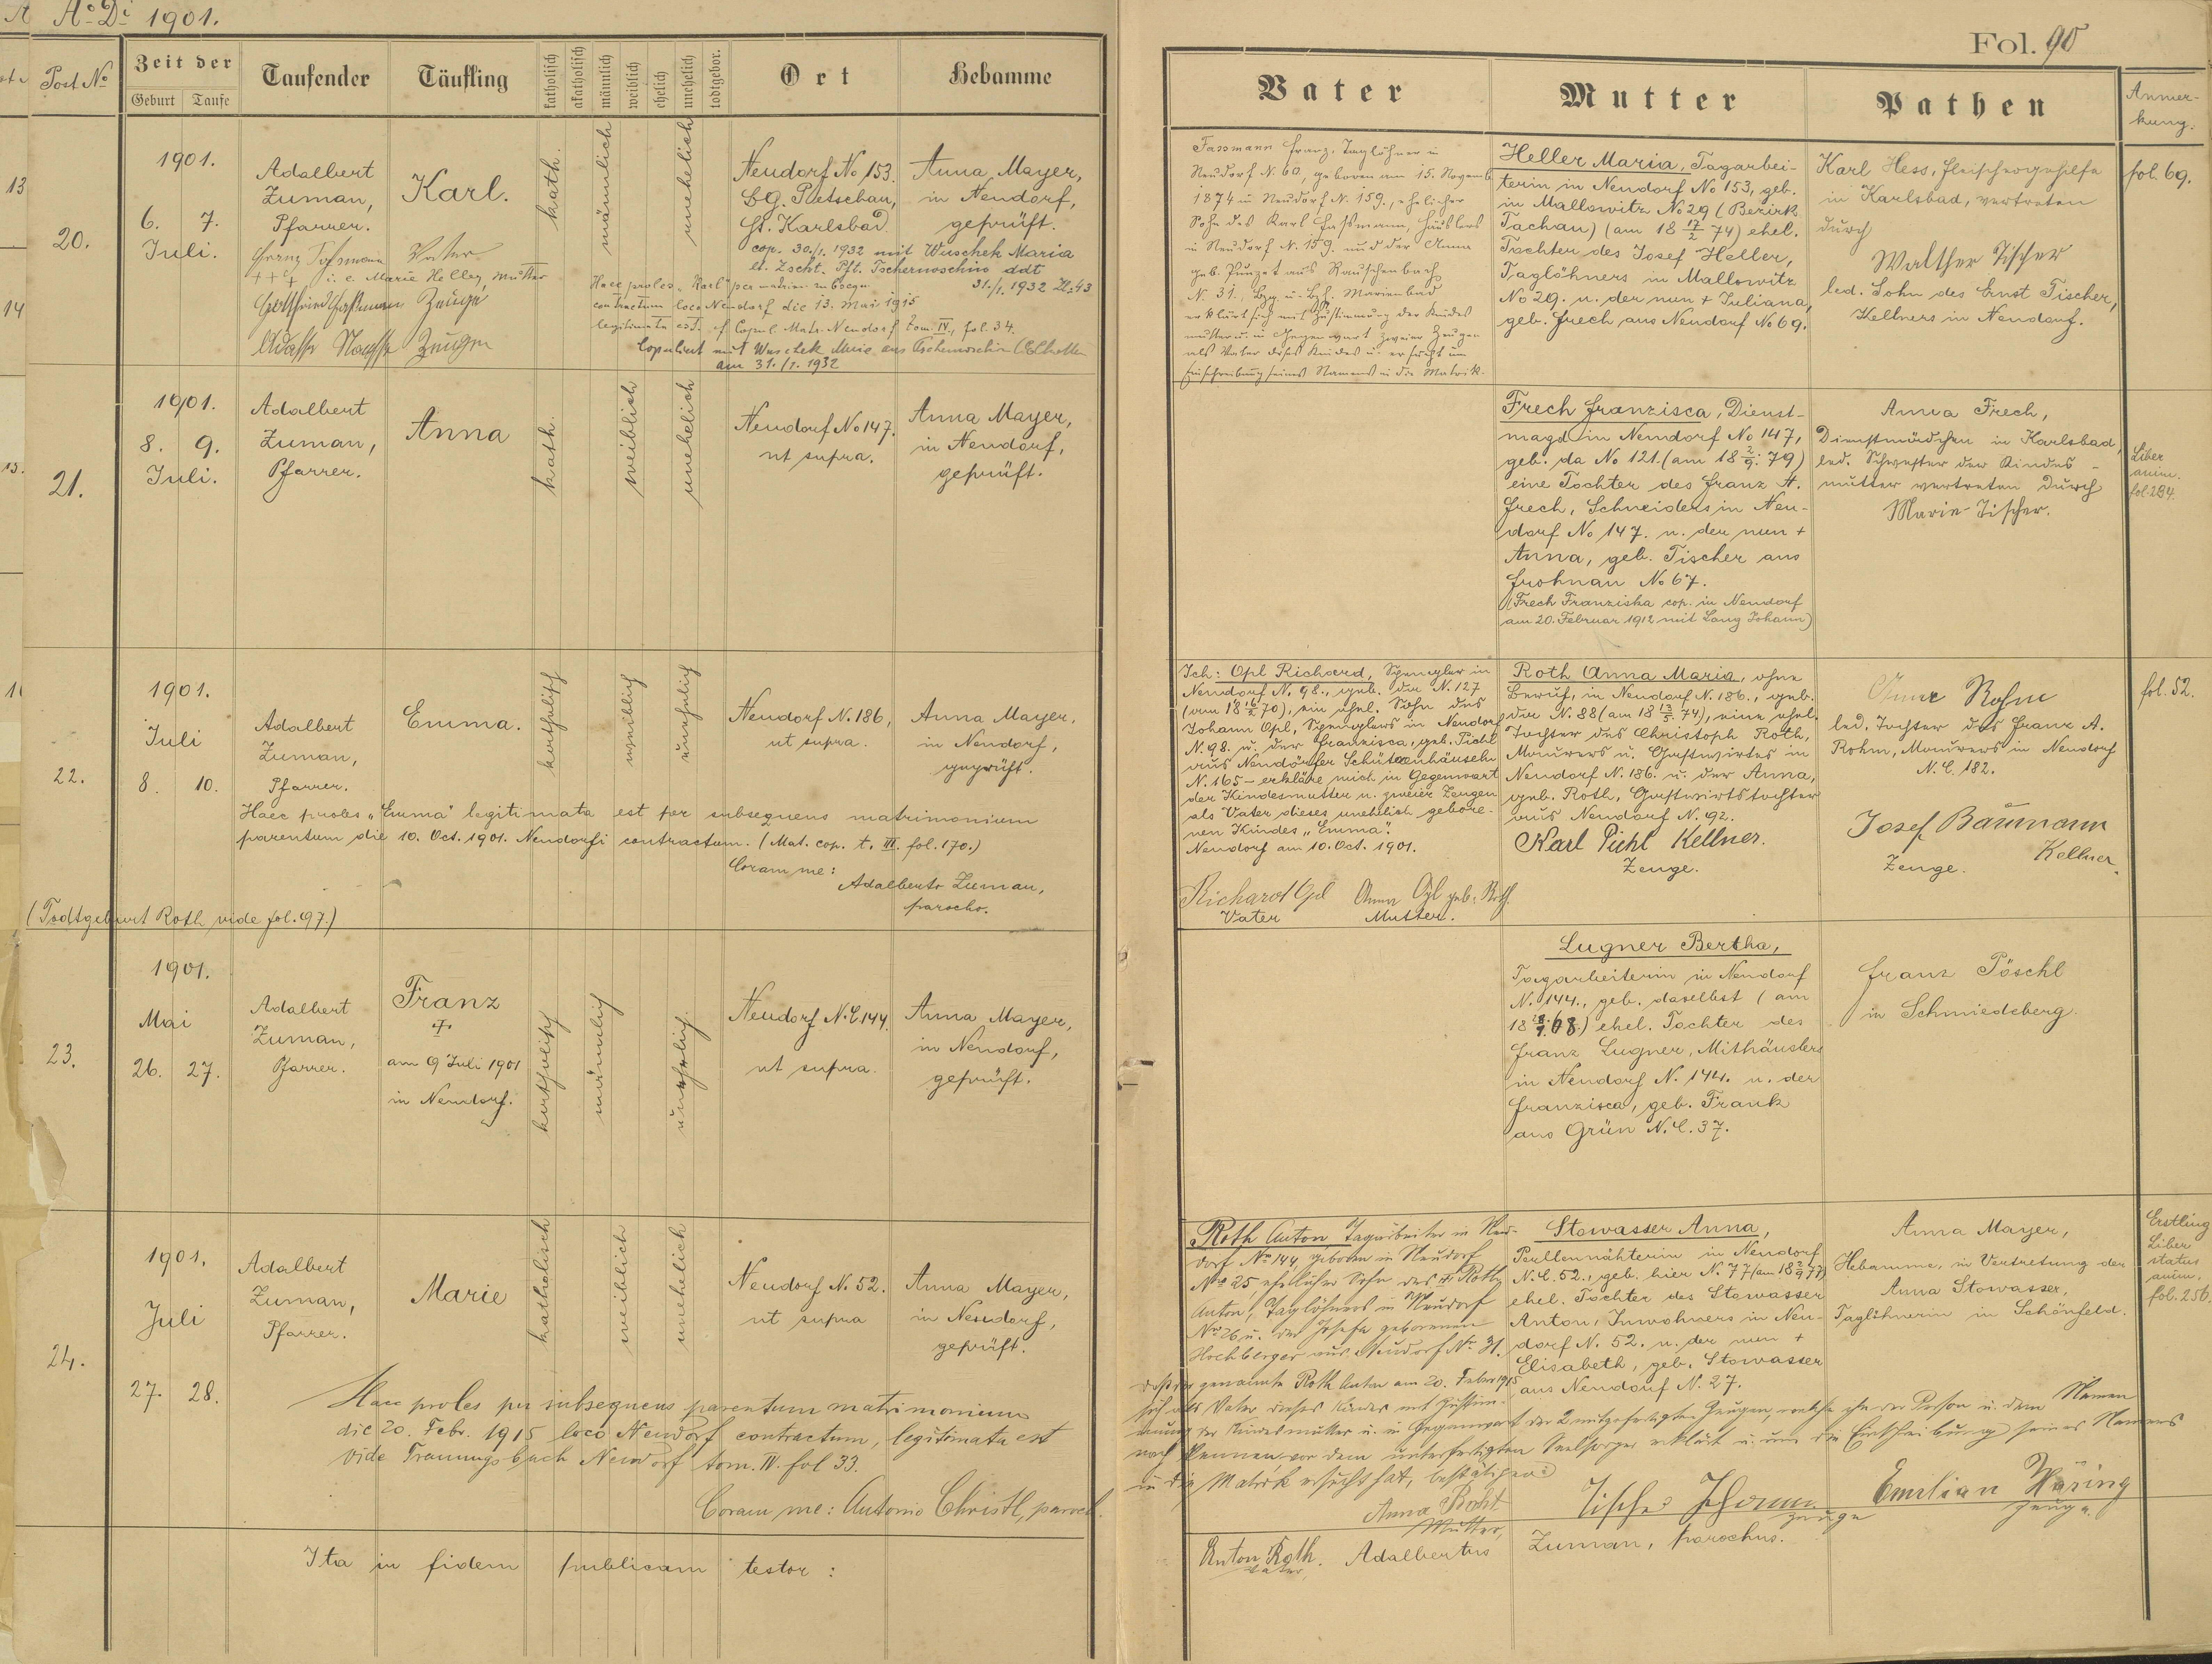 Ao Di 1901.
Fol. 90
Post No
Zeit der
Geburt
Taufe
Taufender
Täufling
katholisch
akatholisch
männlich
weiblich
ehelich
unehelich
todtgebor.
Ort
Hebamme
Vater
Mutter
Pathen
Anmer-
kung.
20.
1901.
6. 7.
Juli.
Adalbert
Zuman,
Pfarrer.
Karl.
kath.
männlich
unehelich
Neudorf No 153.
BG. Petschau,
Bz. Karlsbad.
Anna Mayer,
in Neudorf,
geprüft.
cop. 30./1. 1932 mit Wuschek Maria
Pft. Tschernoschin ddt
31./1. 1932 Zl: 43
Vater
+++ i. e. Marie Heller, Mutter
Zeuge
Zeugen
Haec proles "Karl" per matrim. subsequ.
contractum loco Neudorf die 13. Mai 1915
legitimata est. cf Copul. Matr. Neudorf tom. IV, fol. 34.
Copuliert mit Wuschek Marie aus Tschernoschin
am 31./1. 1932
Fassmann Franz, Taglöhner in
Neudorf N. 60, geboren am 15. November
1874 in Neudorf N. 159., ehelicher
Sohn des Karl Fassmann, Häuslers
in Neudorf N. 159. und der Anna
geb. Punzet aus Rauschenbach
N. 31., Bzg. u. Bzh. Marienbad
erklärt sich mit Zustimmung der Kindes
mutter u. in Gegenwart zweier Zeugen
als Vater dieses Kindes u. ersucht um
Einschreibung seines Namens in die Matrik.
Heller Maria, Tagarbei-
terin in Neudorf No 153, geb.
in Mallowitz No 29 (Bezirk
Tachau) (am 18 17/2 74) ehel.
Tochter des Josef Heller,
Taglöhners in Mallowitz
No 29. u. der nun + Juliana,
geb. Frech aus Neudorf No 69.
Karl Hess, Fleischergehilfe
in Karlsbad, vertreten
durch
Walther Tischer
led. Sohn des Ernst Tischer,
Kellners in Neudorf.
fol. 69.
21.
1901.
8. 9.
Juli.
Adalbert
Zuman,
Pfarrer.
Anna
kath.
weiblich
unehelich
Neudorf No 147.
ut supra.
Anna Mayer,
in Neudorf,
geprüft.
Frech Franzisca, Dienst-
magd in Neudorf No 147,
geb. da No 121. (am 18 2/9 79)
eine Tochter des Franz A.
Frech, Schneiders in Neu-
dorf No 147. u. der nun +
Anna, geb. Tischer aus
Frohnau No 67.
(Frech Franziska cop. in Neudorf
am 20. Februar 1912 mit Lang Johann)
Anna Frech,
Dienstmädchen in Karlsbad,
led. Schwester der Kindes-
mutter vertreten durch
Marie Tischer.
Liber
anim.
fol. 284.
22.
1901.
Juli
8. 10.
Adalbert
Zuman,
Pfarrer.
Emma.
katholisch
weiblich
unehelich
Neudorf N. 186,
ut supra.
Anna Mayer,
in Neudorf,
geprüft.
Haec proles "Emma" legitimata est per subsequens matrimonium
parentum die 10. Oct. 1901. Neudorfi contractum. (Mat. cop. t. III. fol. 170.)
Coram me:
Adalberto Zuman,
parocho.
(Todtgeburt Roth vide fol. 97.)
Ich: Opl Richard, Spengler in
Neudorf N. 98., geb. da N. 127
(am 18 16/2 70), ein ehel. Sohn des
Johann Opl, Spenglers in Neudorf
N. 98. u. der Franzisca, geb. Pichl
aus Neudörfer Schützenhäuseln
N. 165 – erkläre mich in Gegenwart
der Kindesmutter u. zweier Zeugen
als Vater dieses unehelich gebore-
nen Kindes "Emma".
Neudorf am 10. Oct. 1901.
Richard Opl
Vater
Anna Opl geb. Roth.
Mutter.
Roth Anna Maria, ohne
Beruf, in Neudorf N. 186., geb.
da N. 88 (am 18 13/5 74), eine ehel.
Tochter des Christoph Roth,
Maurers u. Gastwirtes in
Neudorf N. 186. u. der Anna,
geb. Roth, Gastwirtstochter
aus Neudorf N. 92.
Karl Pichl Kellner.
Zeuge.
Anna Rohm
led. Tochter des Franz A.
Rohm, Maurers in Neudorf
N. C. 182.
Josef Baumann
Kellner.
Zeuge.
fol. 52.
23.
1901.
Mai
26. 27.
Adalbert
Zuman,
Pfarrer.
Franz
+
am 9 Juli 1901
in Neudorf.
katholisch
männlich
unehelich
Neudorf N. C. 144.
ut supra.
Anna Mayer,
in Neudorf,
geprüft.
Lugner Bertha,
Tagarbeiterin in Neudorf
N. 144., geb. daselbst (am
ehel. Tochter des
Franz Lugner, Mithäuslers
in Neudorf N. 144. u. der
Franzisca, geb. Frank
aus Grün N. C. 37.
Franz Pöschl
in Schmiedeberg.
24.
1901.
Juli
27. 28.
Adalbert
Zuman,
Pfarrer.
Marie
katholisch
weiblich
unehelich
Neudorf N. 52.
ut supra
Anna Mayer,
in Neudorf,
geprüft.
Haec proles per subsequens parentum matrimonium
die 20. Febr. 1915 loco Neudorf contractum, legitimata est
vide Trauungsbuch Neudorf tom. IV. fol 33.
Coram me: Antonio Christl, paroch.
Roth Anton Tagarbeiter in Neu-
dorf No 144, geboren in Neudorf
No 25, ehelicher Sohn des + Roth
Anton, Taglöhners in Neudorf
No 26 u. der Josefa geborenen
Hochberger aus Neudorf No 31.
daß der genannte Roth Anton am 20. Feber 1915
sich als Vater dieses Kindes mit Zustim-
mung der Kindesmutter u. in Gegenwart der 2 mitgefertigten Zeugen, welche ihn der Person u. dem Namen
nach kennen vor dem unterfertigten Seelsorger erklärt u. um die Einschreibung seines Namens
in die Matrik ersucht hat, bestätigen:
Stowasser Anna,
Perllennähterin in Neudorf
N. C. 52., geb. hier N. 77 (am 18 2/9 77)
ehel. Tochter des Stawasser
Anton, Inwohners in Neu-
dorf N. 52. u. der nun +
Elisabeth, geb. Stowasser
aus Neudorf N. 27.
Anna Mayer,
Hebamme, in Vertretung der
Anna Stowasser,
Taglöhnerin in Schönfeld.
Erstling
Liber
status
anim.
fol. 256.
Anna Roht
Mutter,
Tischer Johann
Zeuge
Emilian Häring
Zeuge.
Anton Roth.
Vater,
Ita in fidem publicam testor:
Adalbertus Zuman, parochus.